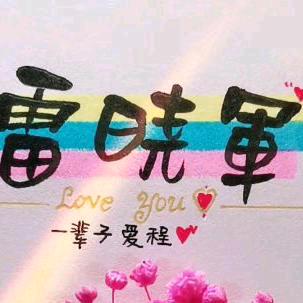 雷晓军
Love you
一辈子爱程